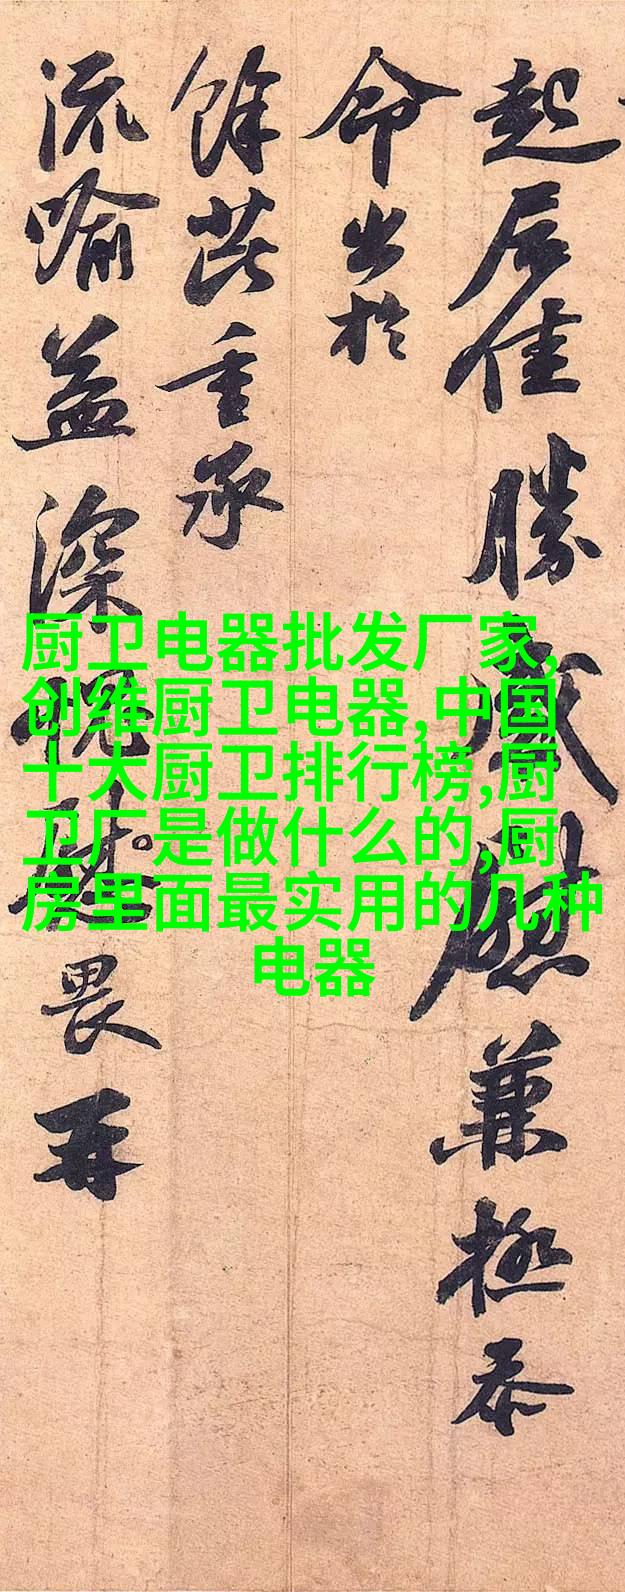 起居佳勝感慰兼極忝
命出於
餘芘重承
流喻益深愧畏再
厨卫电器批发厂家,
创维厨卫电器,中国
十大厨卫排行榜,厨
卫厂是做什么的,厨
房里面最实用的几种
电器